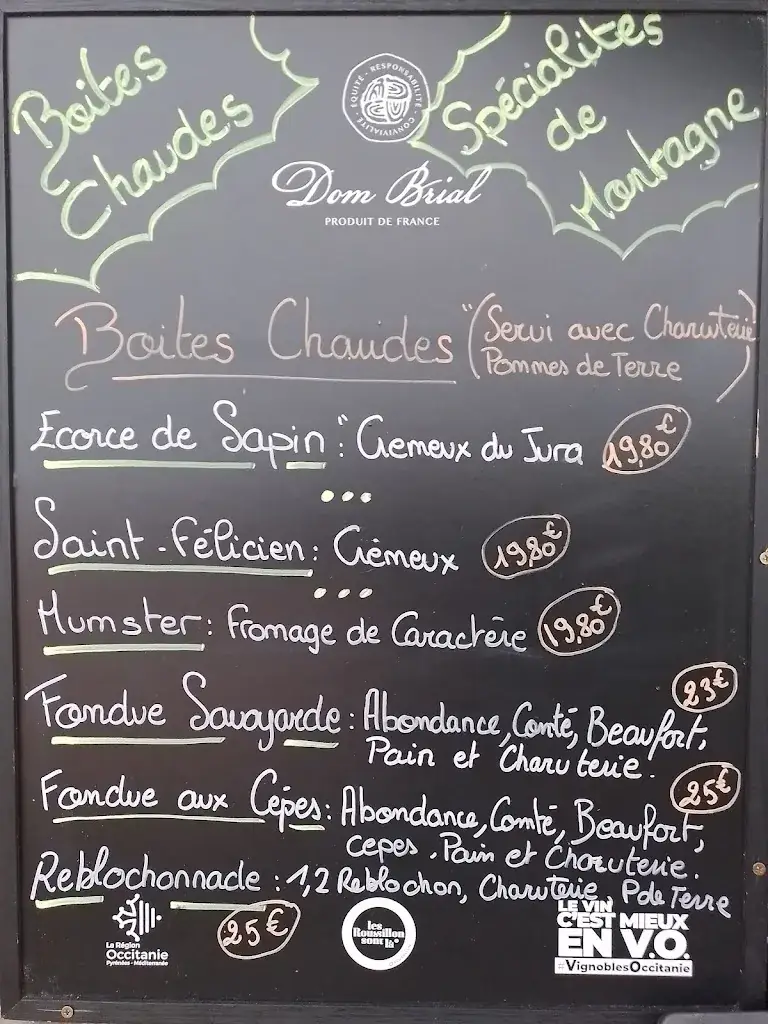 Boites
Chaudes
ÉQUITÉ - RESPONSABILITÉ - CONVIVIALITÉ
Spécialités
de
Montagne
Dom Brial
PRODUIT DE FRANCE
Boites Chaudes "(Servi avec Charcuterie
Pommes de Terre)
Ecorce de Sapin : "Cremeux du Jura 19,80€
...
Saint-Félicien : Crèmeux 19,80€
...
Mumster : Fromage de Caractère 19,80€
23€
Fondue Savoyarde : Abondance, Comté, Beaufort,
Pain et Charcuterie.
25€
Fondue aux Cépes : Abondance, Comté, Beaufort,
cepes. Pain et Charcuterie.
Reblochonnade : 1,2 Reblochon, Charcuterie, P de Terre
25€
La Région
Occitanie
Pyrénées - Méditerranée
les
Roussillon
sont là
LE VIN
C'EST MIEUX
EN V.O.
#VignoblesOccitanie